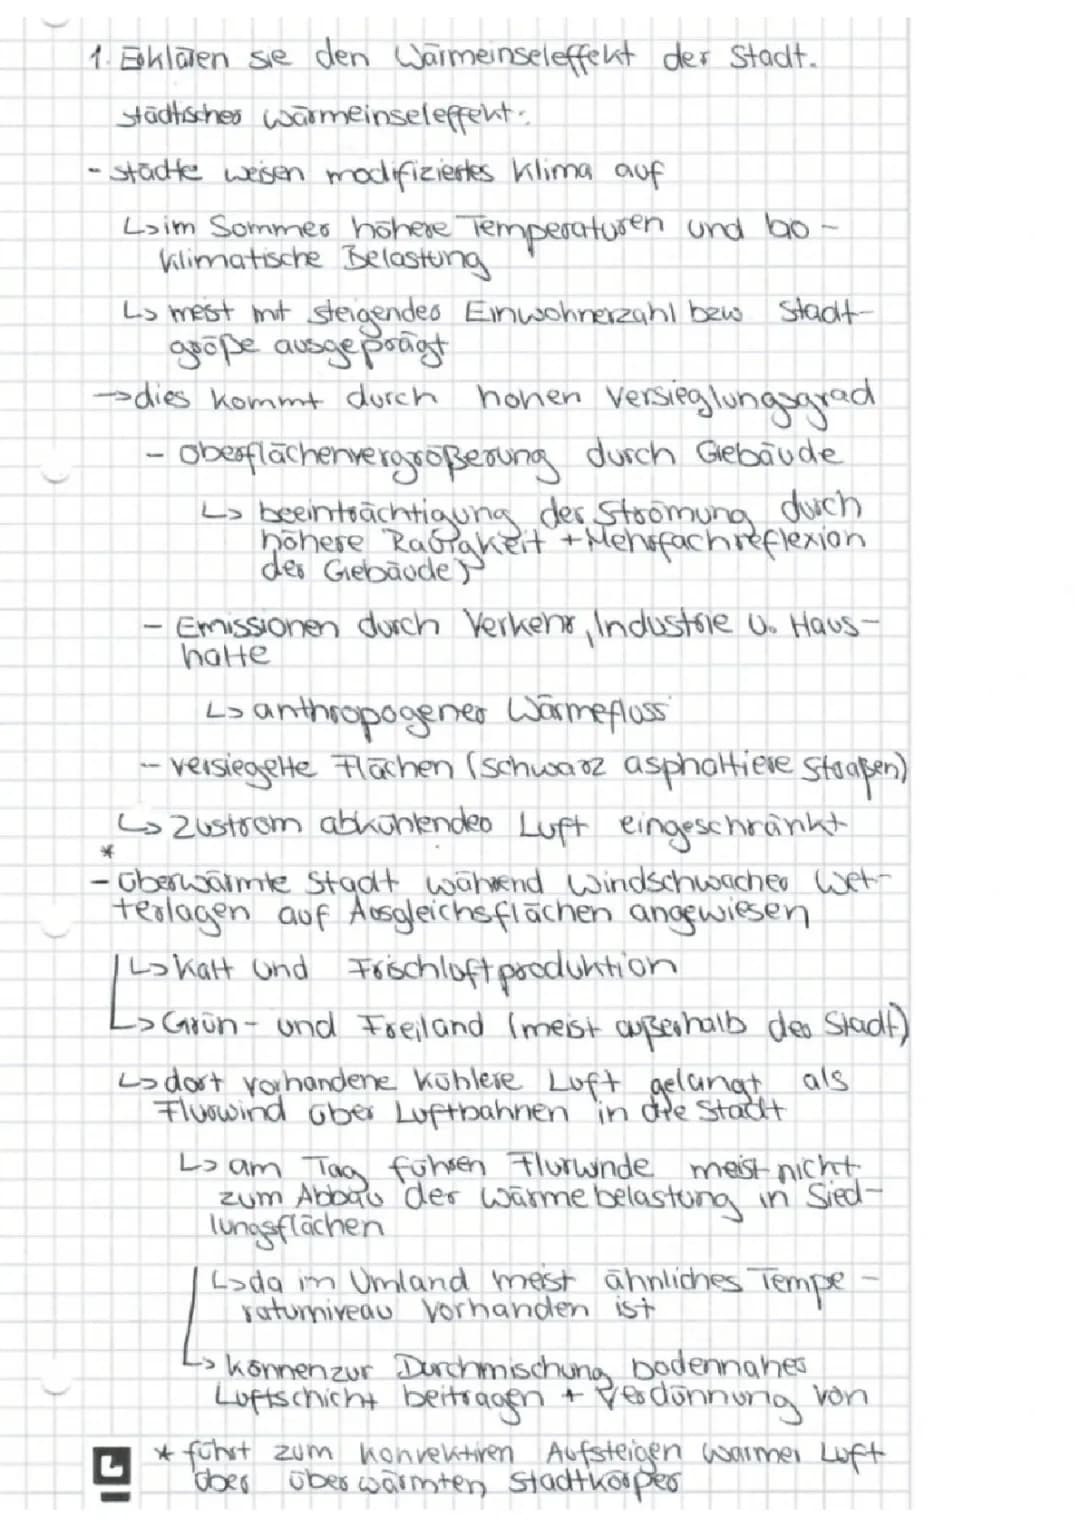 1. Erklären sie den Wärmeinseleffekt der Stadt.
städtischer wärmeinseleffekt:
- städte weisen modifiziertes Klima auf
↳ im Sommer höhere Temperaturen und bio-
klimatische Belastung
↳ meist mit steigender Einwohnerzahl bzw Stadt-
größe ausgeprägt
→ dies kommt durch hohen Versieglungsgrad
- Oberflächenvergrößerung durch Gebäude
↳ beeinträchtigung der Strömung durch
höhere Rauigkeit + Mehrfachreflexion
der Gebäude)
- Emissionen durch Verkehr, Industrie u. Haus-
halte
↳ anthropogener Wärmefluss
- versiegelte Flächen (schwarz asphaltiere Straßen)
↳ Zustrom abkühlender Luft eingeschränkt
*
- überwärmte Stadt während windschwacher Wet-
terlagen auf Ausgleichsflächen angewiesen
↳ Kalt und Frischluftproduktion
↳ Grün- und Freiland (meist außerhalb der Stadt)
↳ dort vorhandene kühlere Luft gelangt als
Flurwind über Luftbahnen in die Stadt
↳ am Tag führen Flurwinde meist nicht
zum Abbau der Wärmebelastung in Sied-
lungsflächen
↳ da im Umland meist ähnliches Tempe-
raturniveau vorhanden ist
↳ können zur Durchmischung bodennaher
Luftschicht beitragen + Verdünnung von
* führt zum konvektiven Aufsteigen warmer Luft
über überwärmten Stadtkörper